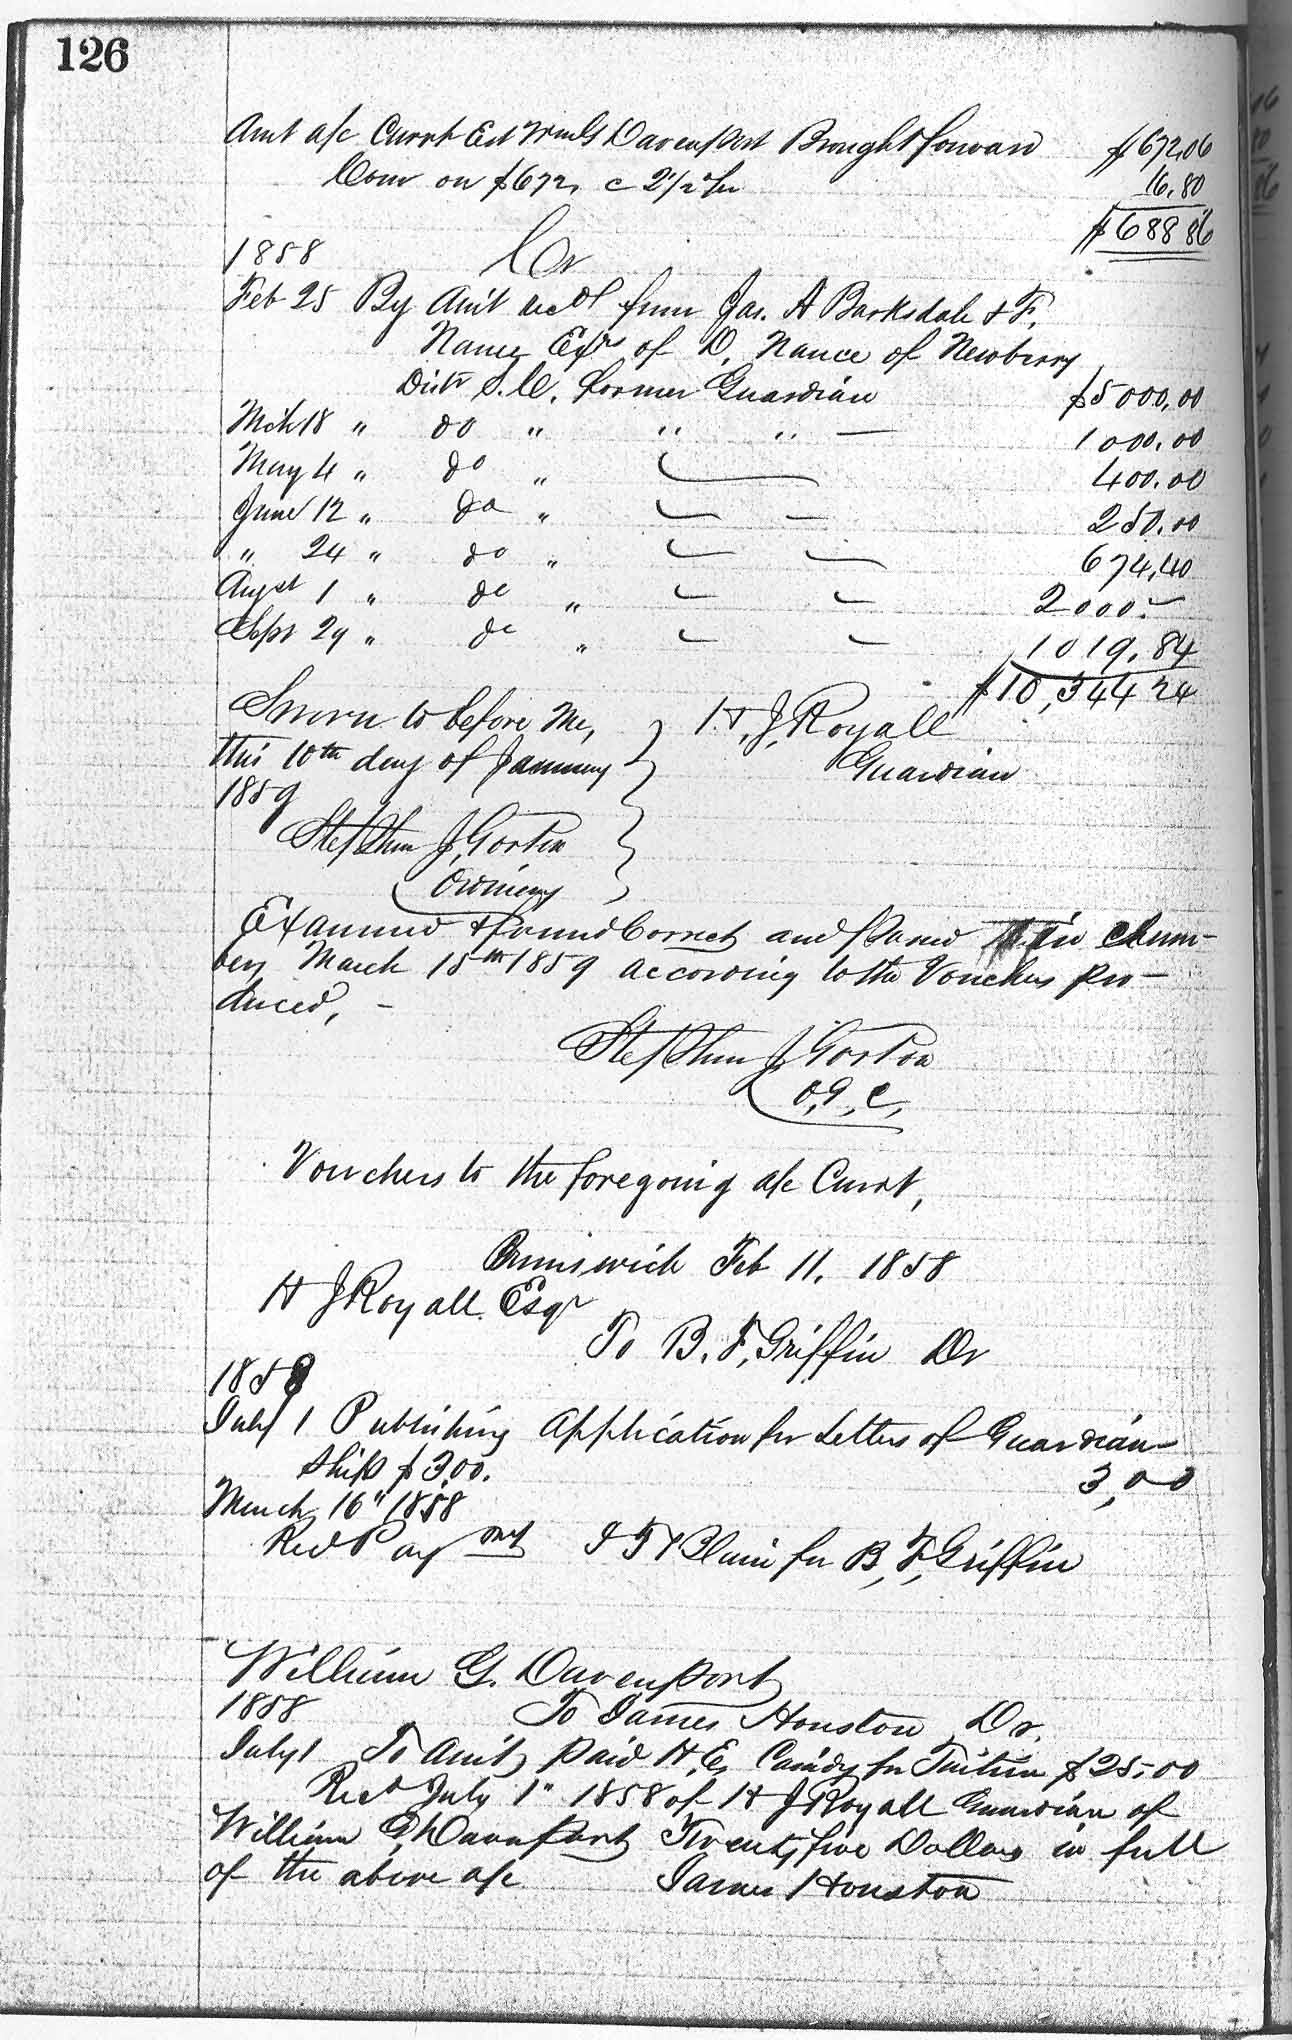 126
Amt a/c Currt Est Wm G Davenport Brought forward $672,06
Com on $672, c 2 1/2 pr 16,80
$688 86
1858 Cr
Feb 25 By Amt recd from Jas. A Barksdale & F.
Nance Exrs of D, Nance of Newberry
Distr S.C. former Guardian $5000,00
Mch 18 " do " " " — 1000.00
May 4 " do " 400.00
June 12 " do " 250.00
" 24 " do " 674,40
Augst 1 " do " 2000.-
Sept 29 " do " 1019.84
$10,344 24
Sworn to before Me, H, J, Royall
this 10th day of January Guardian
1859
Stephen J, Gorton
Ordinary
Examined & found Correct and passed in cham-
bers March 15th 1859 according to the Vouchers pro-
duced, -
Stephen J Gorton
O, G, C,
Vouchers to the foregoing a/c Currt,
Brunswick Feb 11, 1858
H J Royall Esqr
To B. F, Griffin Dr
1858
July 1 Publishing application for Letters of Guardian-
Ship $3,00. 3,00
March 16" 1858
Recd Payment Blain for B, F, Griffin
William G. Davenport
1858 To James Houston Dr.
July 1 To Amt paid H, E, for Tuition $25-00
Recd July 1" 1858 of H J Royall Guardian of
William G, Davenport Twenty five Dollars in full
of the above a/c James Houston